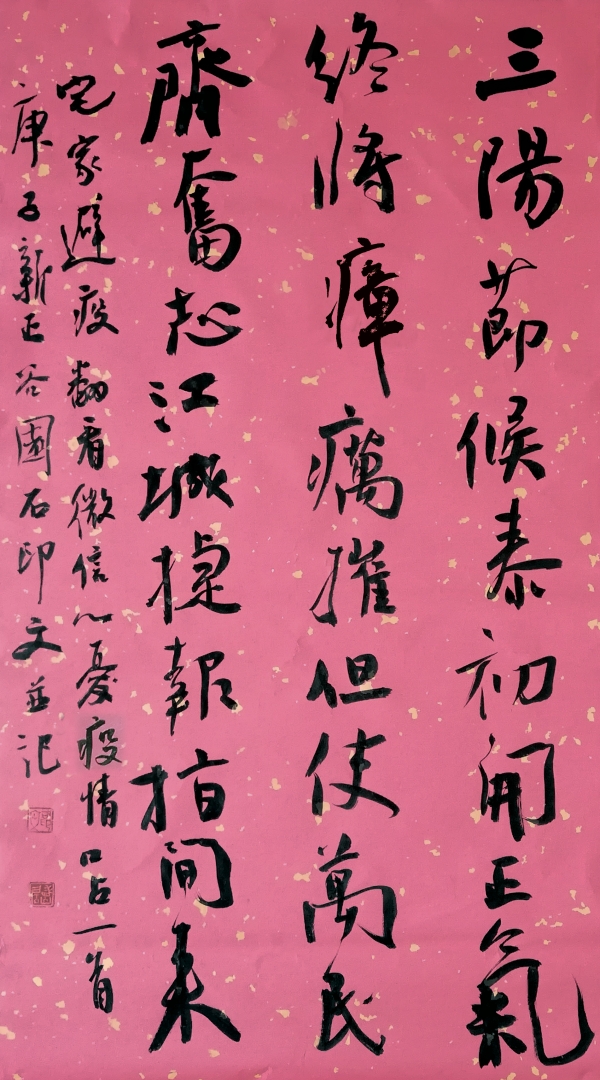 三陽節候泰初開正氣
終將瘴癘摧但使萬民
齊奮起江城捷報指間來
宅家避疫翻看微信心憂疫情口占一首
庚子新正谷石印文並記